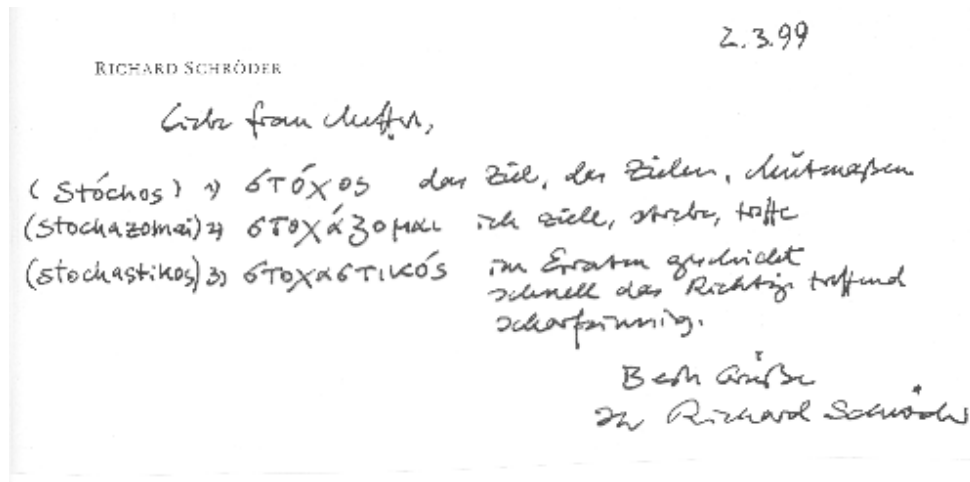 2.3.99
RICHARD SCHRÖDER
Liebe Frau
(Stóchos) 1) στόχος das Ziel, das Zielen, Mutmaßen
(stochazomai) 2) στοχάζομαι ich ziele, strebe, treffe
(stochastikos) 3) στοχαστικός im Erraten geschickt
schnell das Richtige treffend
scharfsinnig.
Beste Grüße
Ihr Richard Schröder